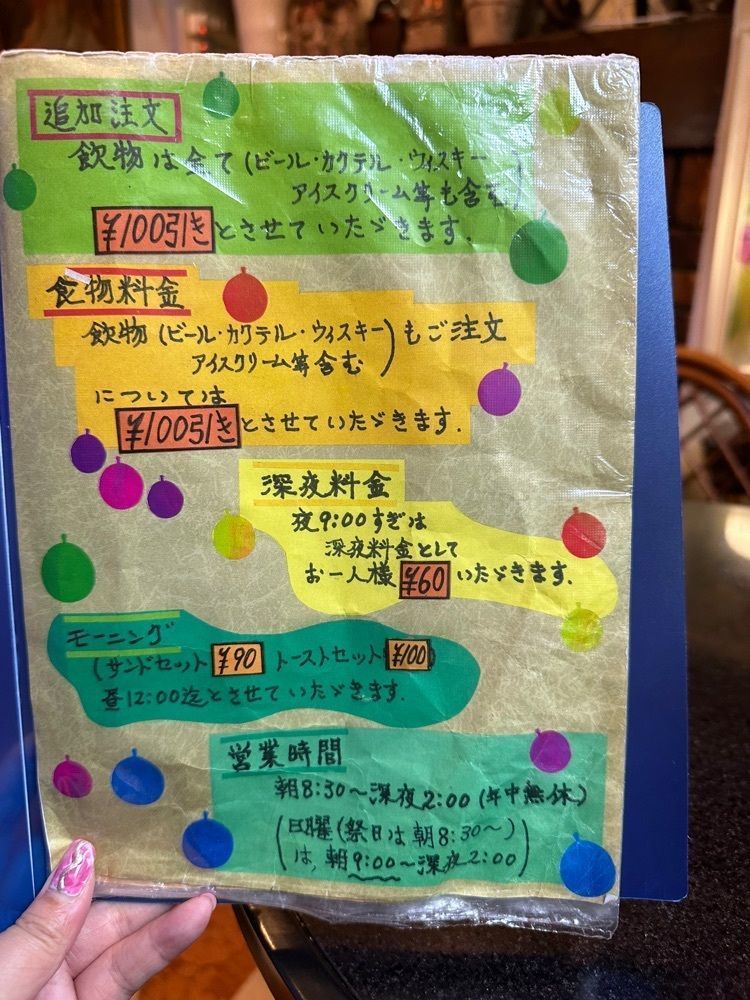 追加注文
飲物は全て(ビール・カクテル・ウィスキー
アイスクリーム等も含む)
¥100引きとさせていたゞきます.
食物料金
飲物(ビール・カクテル・ウィスキー
アイスクリーム等含む)もご注文
については
¥100引きとさせていたゞきます.
深夜料金
夜9:00すぎは
深夜料金として
お一人様¥60いたゞきます.
モーニング
(サンドセット¥90 トーストセット¥100)
昼12:00迄とさせていたゞきます.
営業時間
朝8:30〜深夜2:00(年中無休)
(日曜(祭日は朝8:30〜)
は,朝9:00〜深夜2:00)